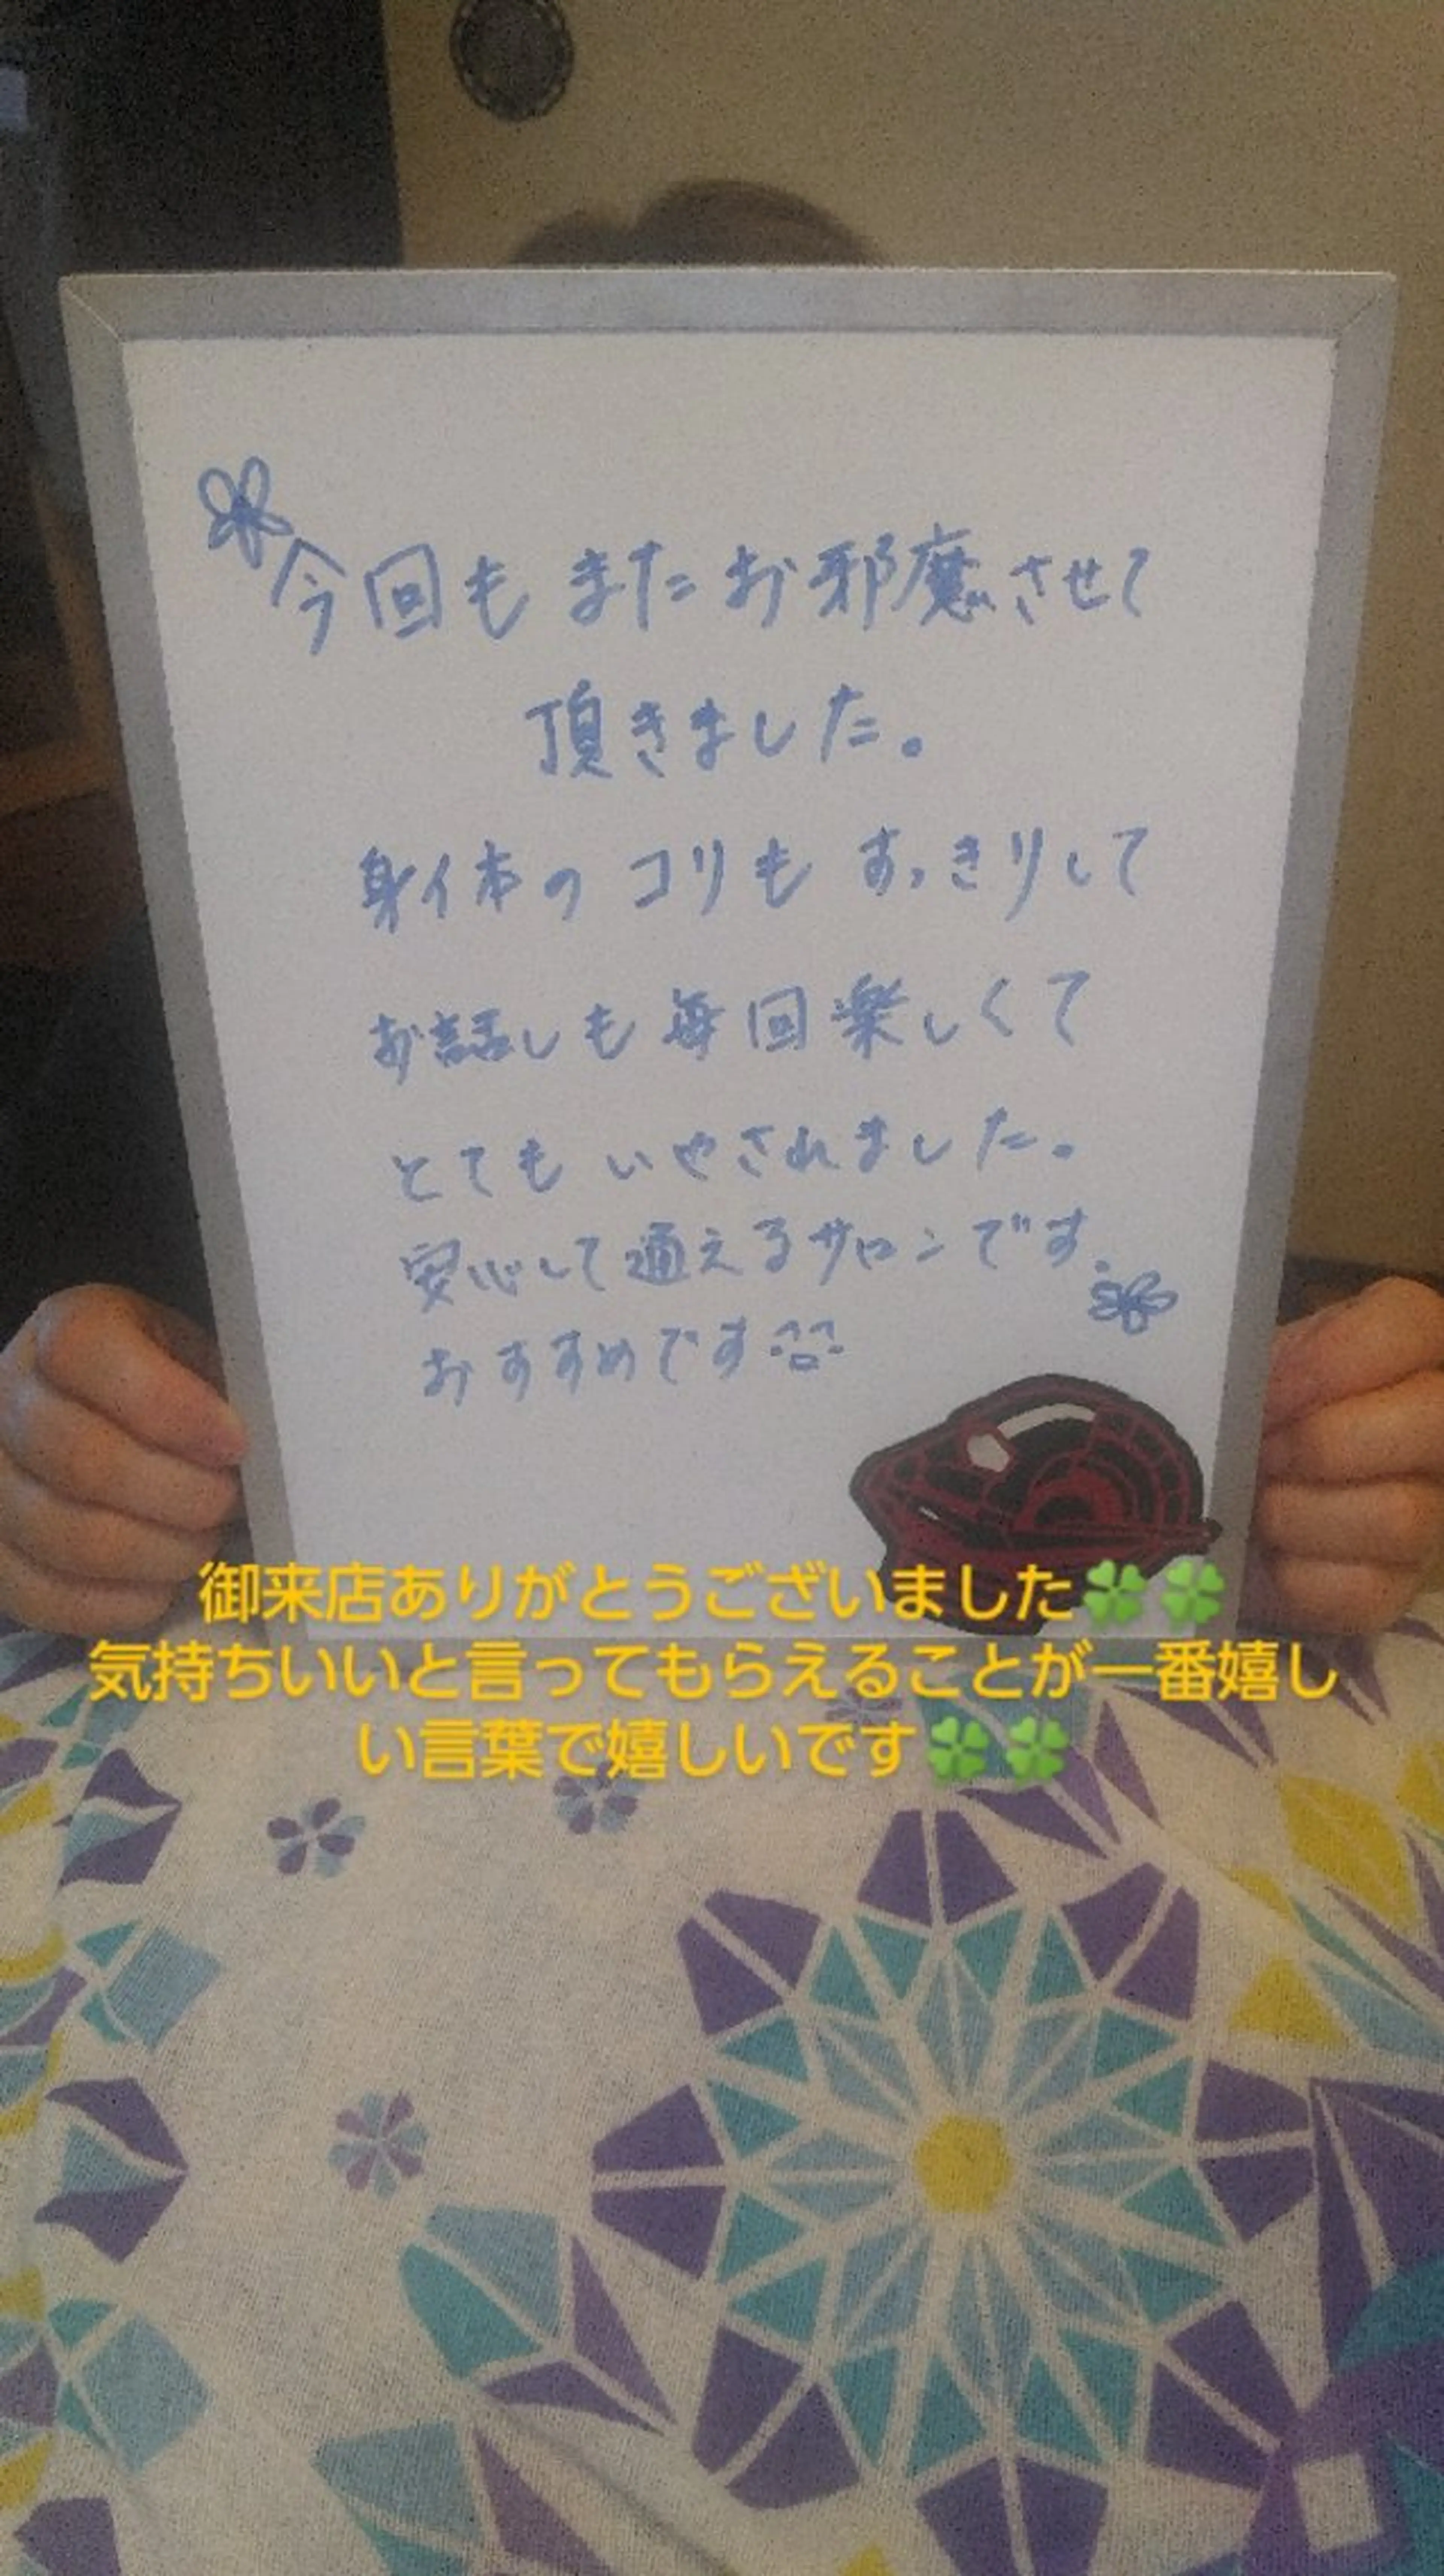 今回もまたお邪魔させて
頂きました。
身体のコリもすっきりして
お話しも毎回楽しくて
とてもいやされました。
安心して通えるサロンです。
おすすめです
御来店ありがとうございました🍀🍀
気持ちいいと言ってもらえることが一番嬉し
い言葉で嬉しいです🍀🍀